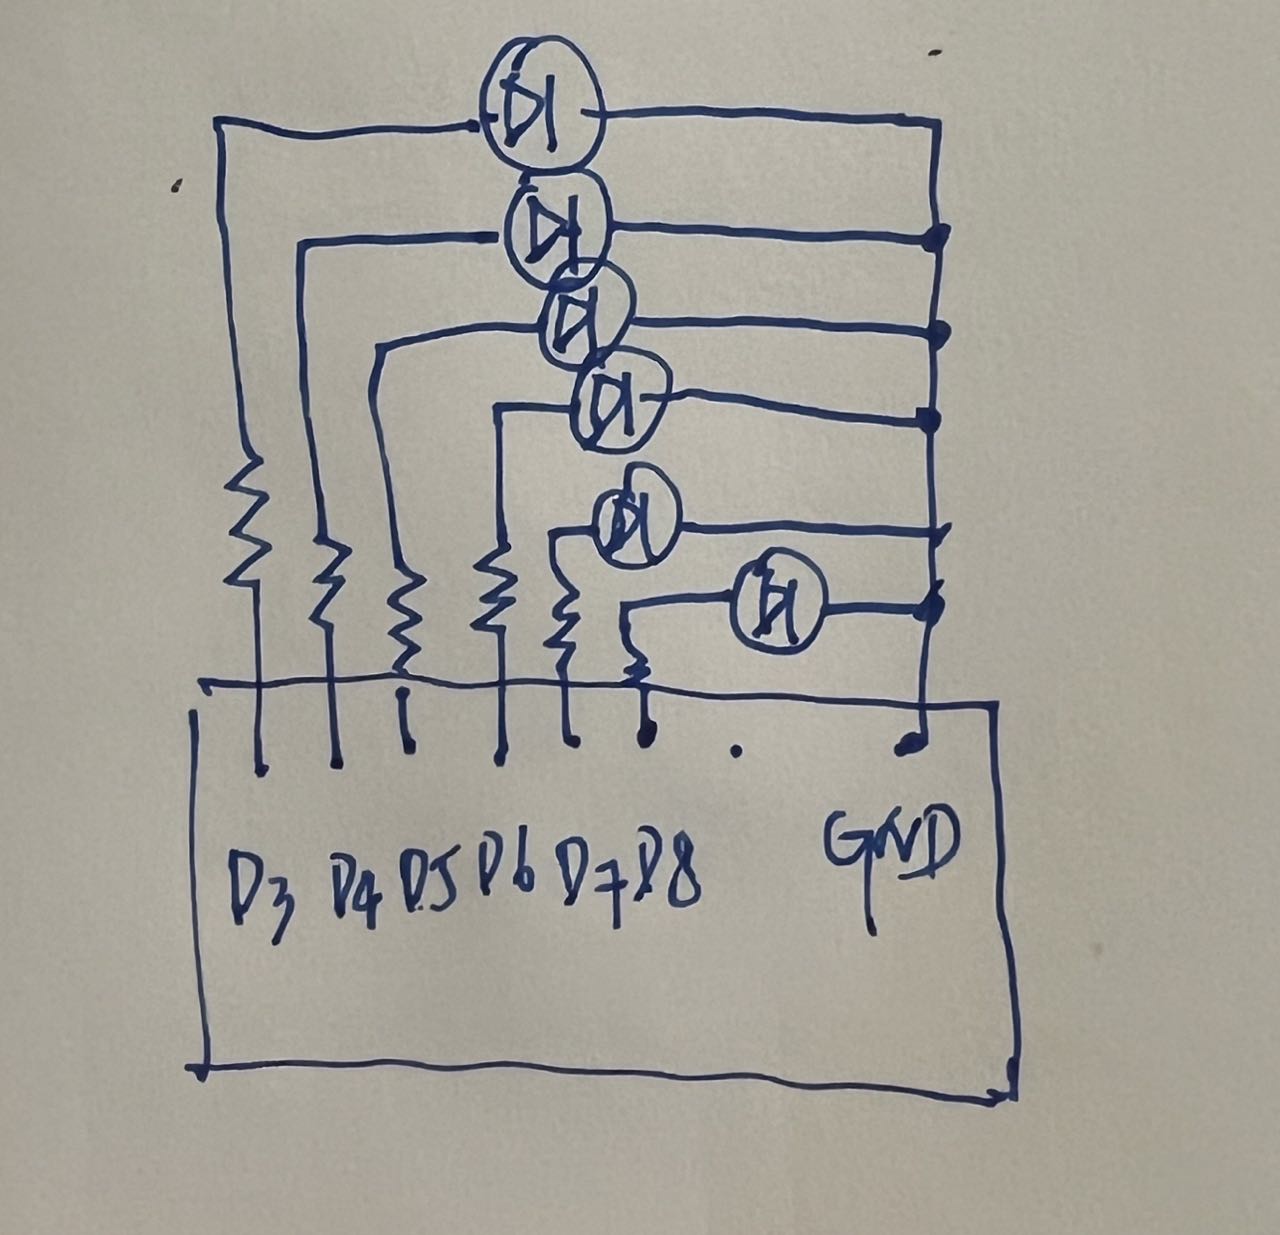 D3 D4 D5 D6 D7 D8 GND